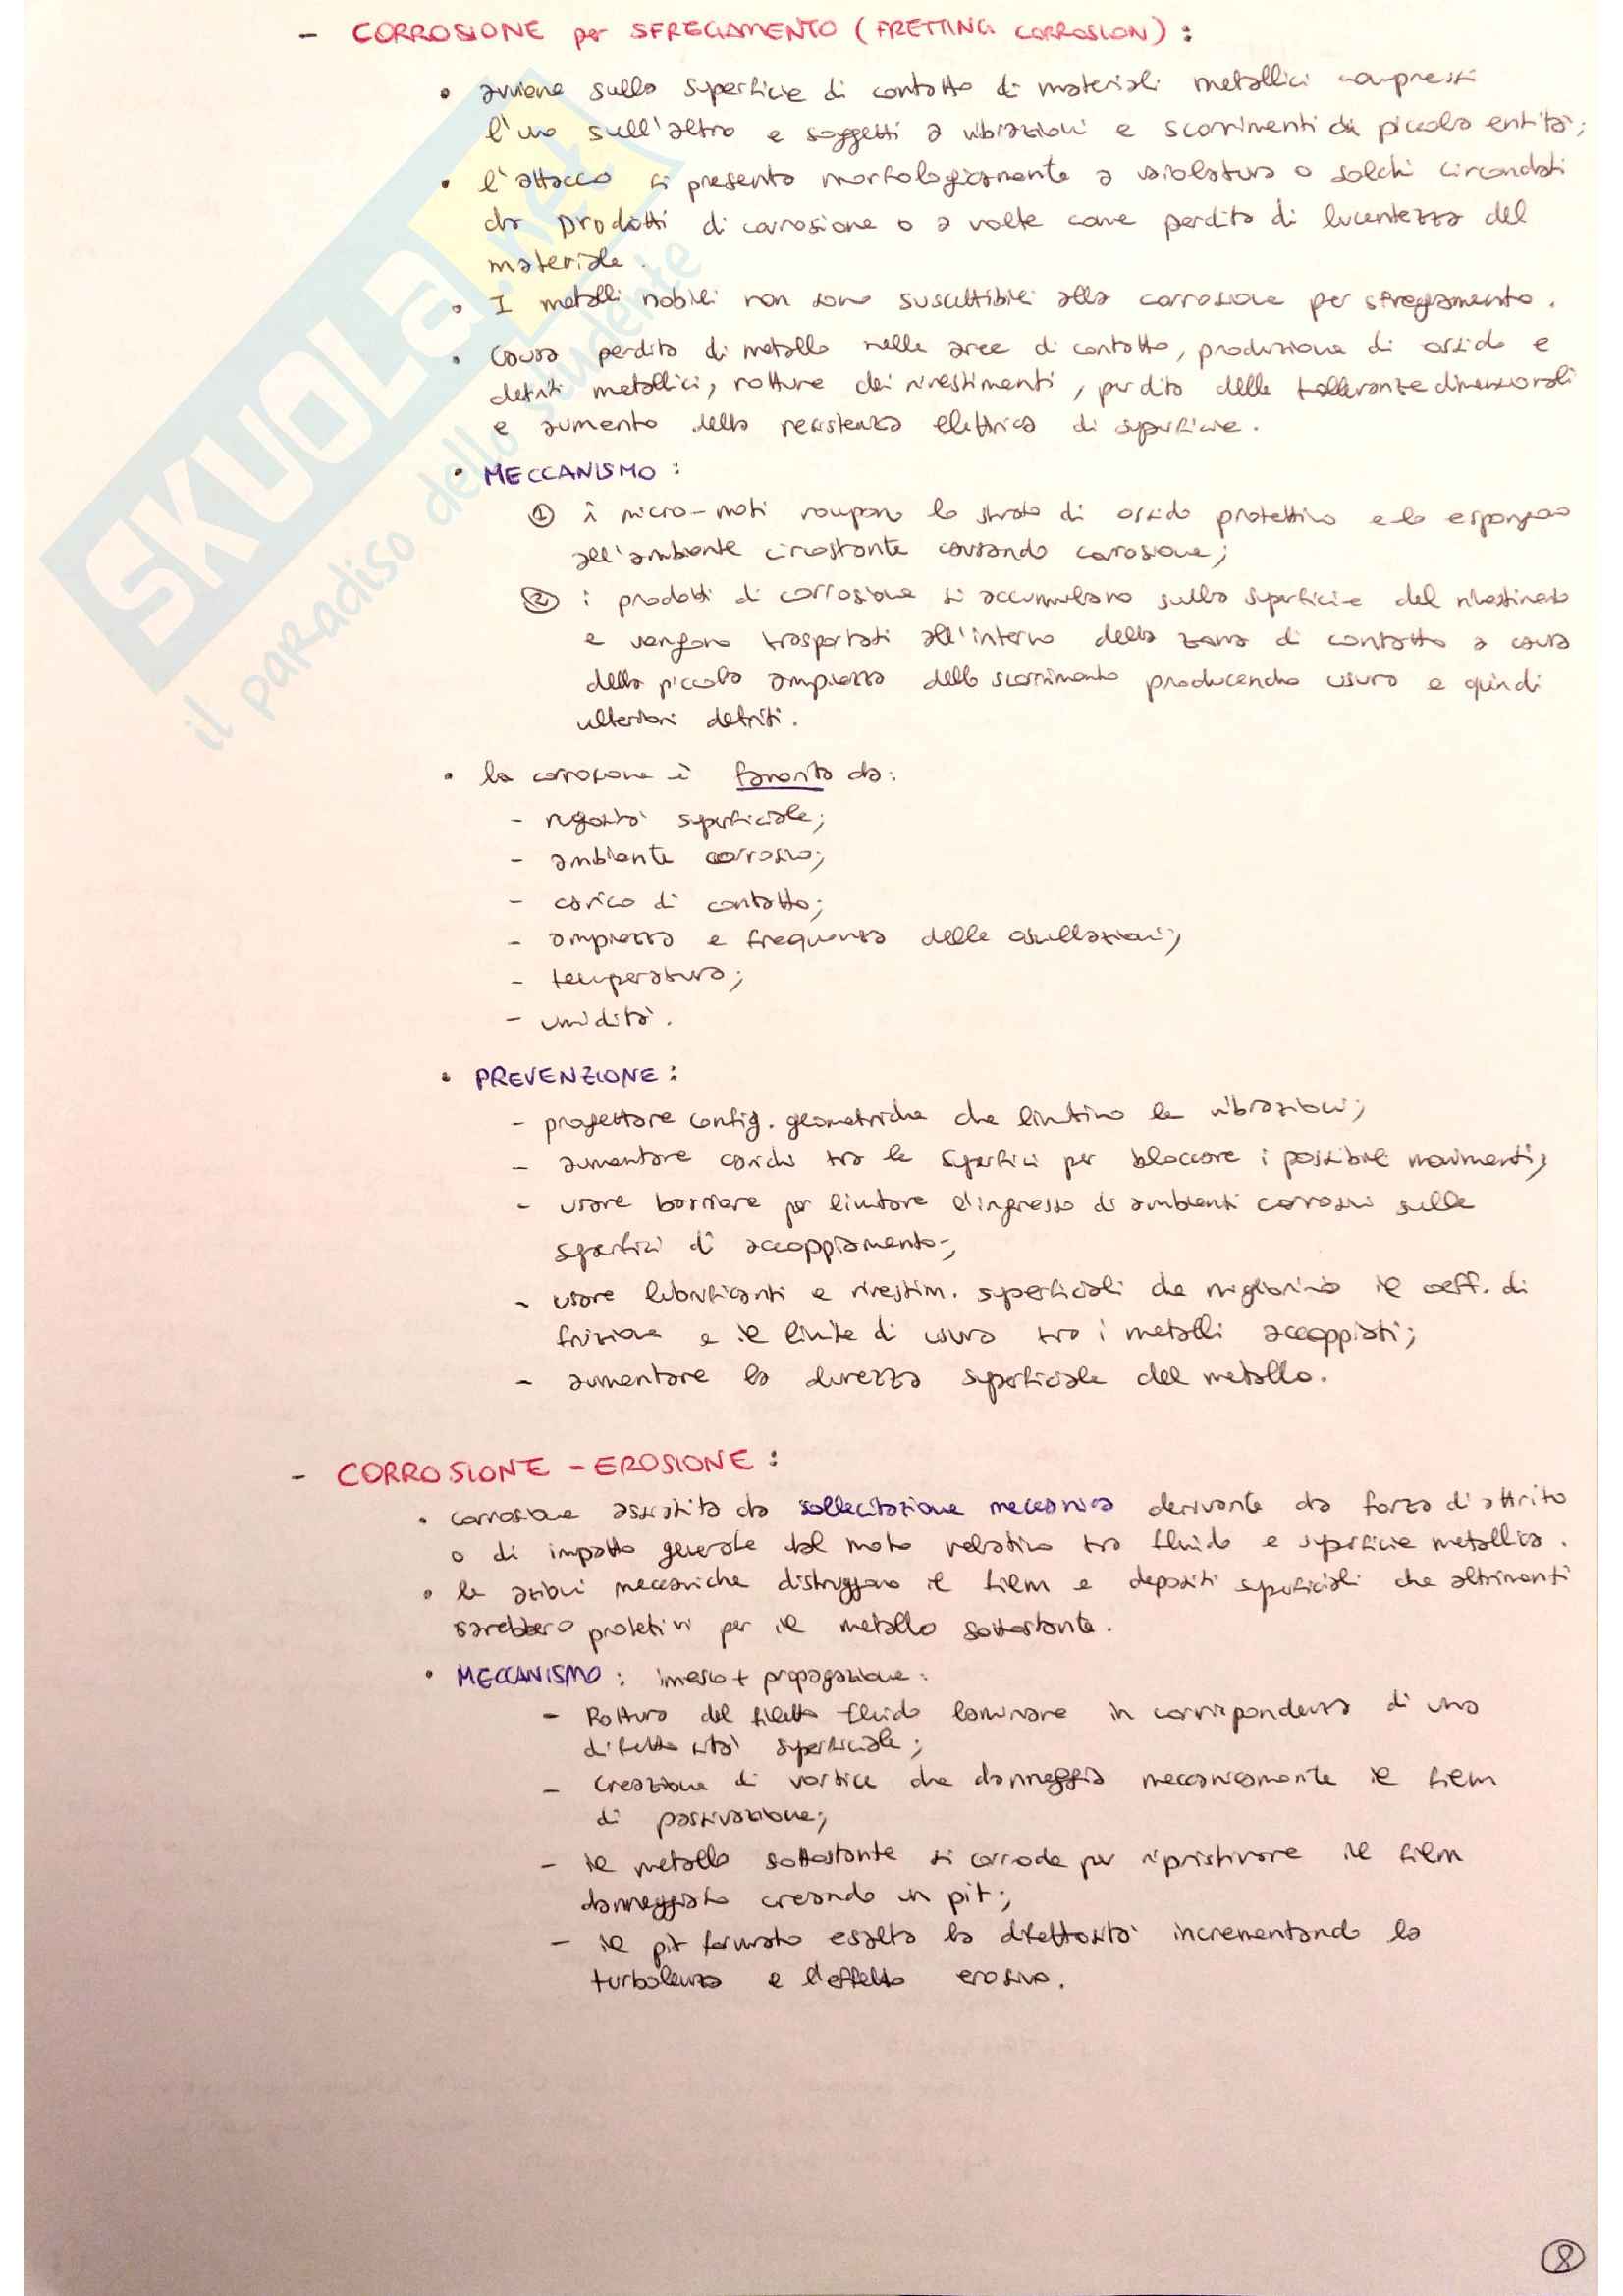 - CORROSIONE per SFREGAMENTO (FRETTING CORROSION) :
• avviene sulla superficie di contatto di materiali metallici compressi
l'uno sull'altro e soggetti a vibrazioni e scorrimenti di piccola entità;
• l'attacco si presenta morfologicamente a vaiolatura o solchi circondati
da prodotti di corrosione o a volte come perdita di lucentezza del
materiale.
• I metalli nobili non sono suscettibili alla corrosione per sfregamento.
• Causa perdita di metallo nelle aree di contatto, produzione di ossido e
detriti metallici, rotture dei rivestimenti, perdita delle tolleranze dimensionali
e aumento della resistenza elettrica di superficie.
• MECCANISMO :
① i micro-moti rompono lo strato di ossido protettivo e lo espongono
all'ambiente circostante causando corrosione;
② i prodotti di corrosione si accumulano sulla superficie del rivestimento
e vengono trasportati all'interno della zona di contatto a causa
della piccola ampiezza dello scorrimento producendo usura e quindi
ulteriori detriti.
• la corrosione è favorita da:
- rugosità superficiale;
- ambiente corrosivo;
- carico di contatto;
- ampiezza e frequenza delle oscillazioni;
- temperatura;
- umidità.
• PREVENZIONE :
- progettare config. geometriche che limitino le vibrazioni;
- aumentare carichi tra le superfici per bloccare i possibili movimenti;
- usare barriere per limitare l'ingresso di ambienti corrosivi sulle
superfici di accoppiamento;
- usare lubrificanti e rivestim. superficiali che migliorino il coeff. di
frizione e il limite di usura tra i metalli accoppiati;
- aumentare la durezza superficiale del metallo.
- CORROSIONE - EROSIONE :
• corrosione assistita da sollecitazione meccanica derivante da forza d'attrito
o di impatto generate dal moto relativo tra fluido e superficie metallica.
• le azioni meccaniche distruggono il film e depositi superficiali che altrimenti
sarebbero protettivi per il metallo sottostante.
• MECCANISMO : innesco + propagazione :
- Rottura del filetto fluido laminare in corrispondenza di una
difettosità superficiale;
- Creazione di vortice che danneggia meccanicamente il film
di passivazione;
- il metallo sottostante si corrode per ripristinare il film
danneggiato creando un pit;
- il pit formato esalta la difettosità incrementando la
turbolenza e l'effetto erosivo.
8
SKUOLA.net
il paradiso dello studente